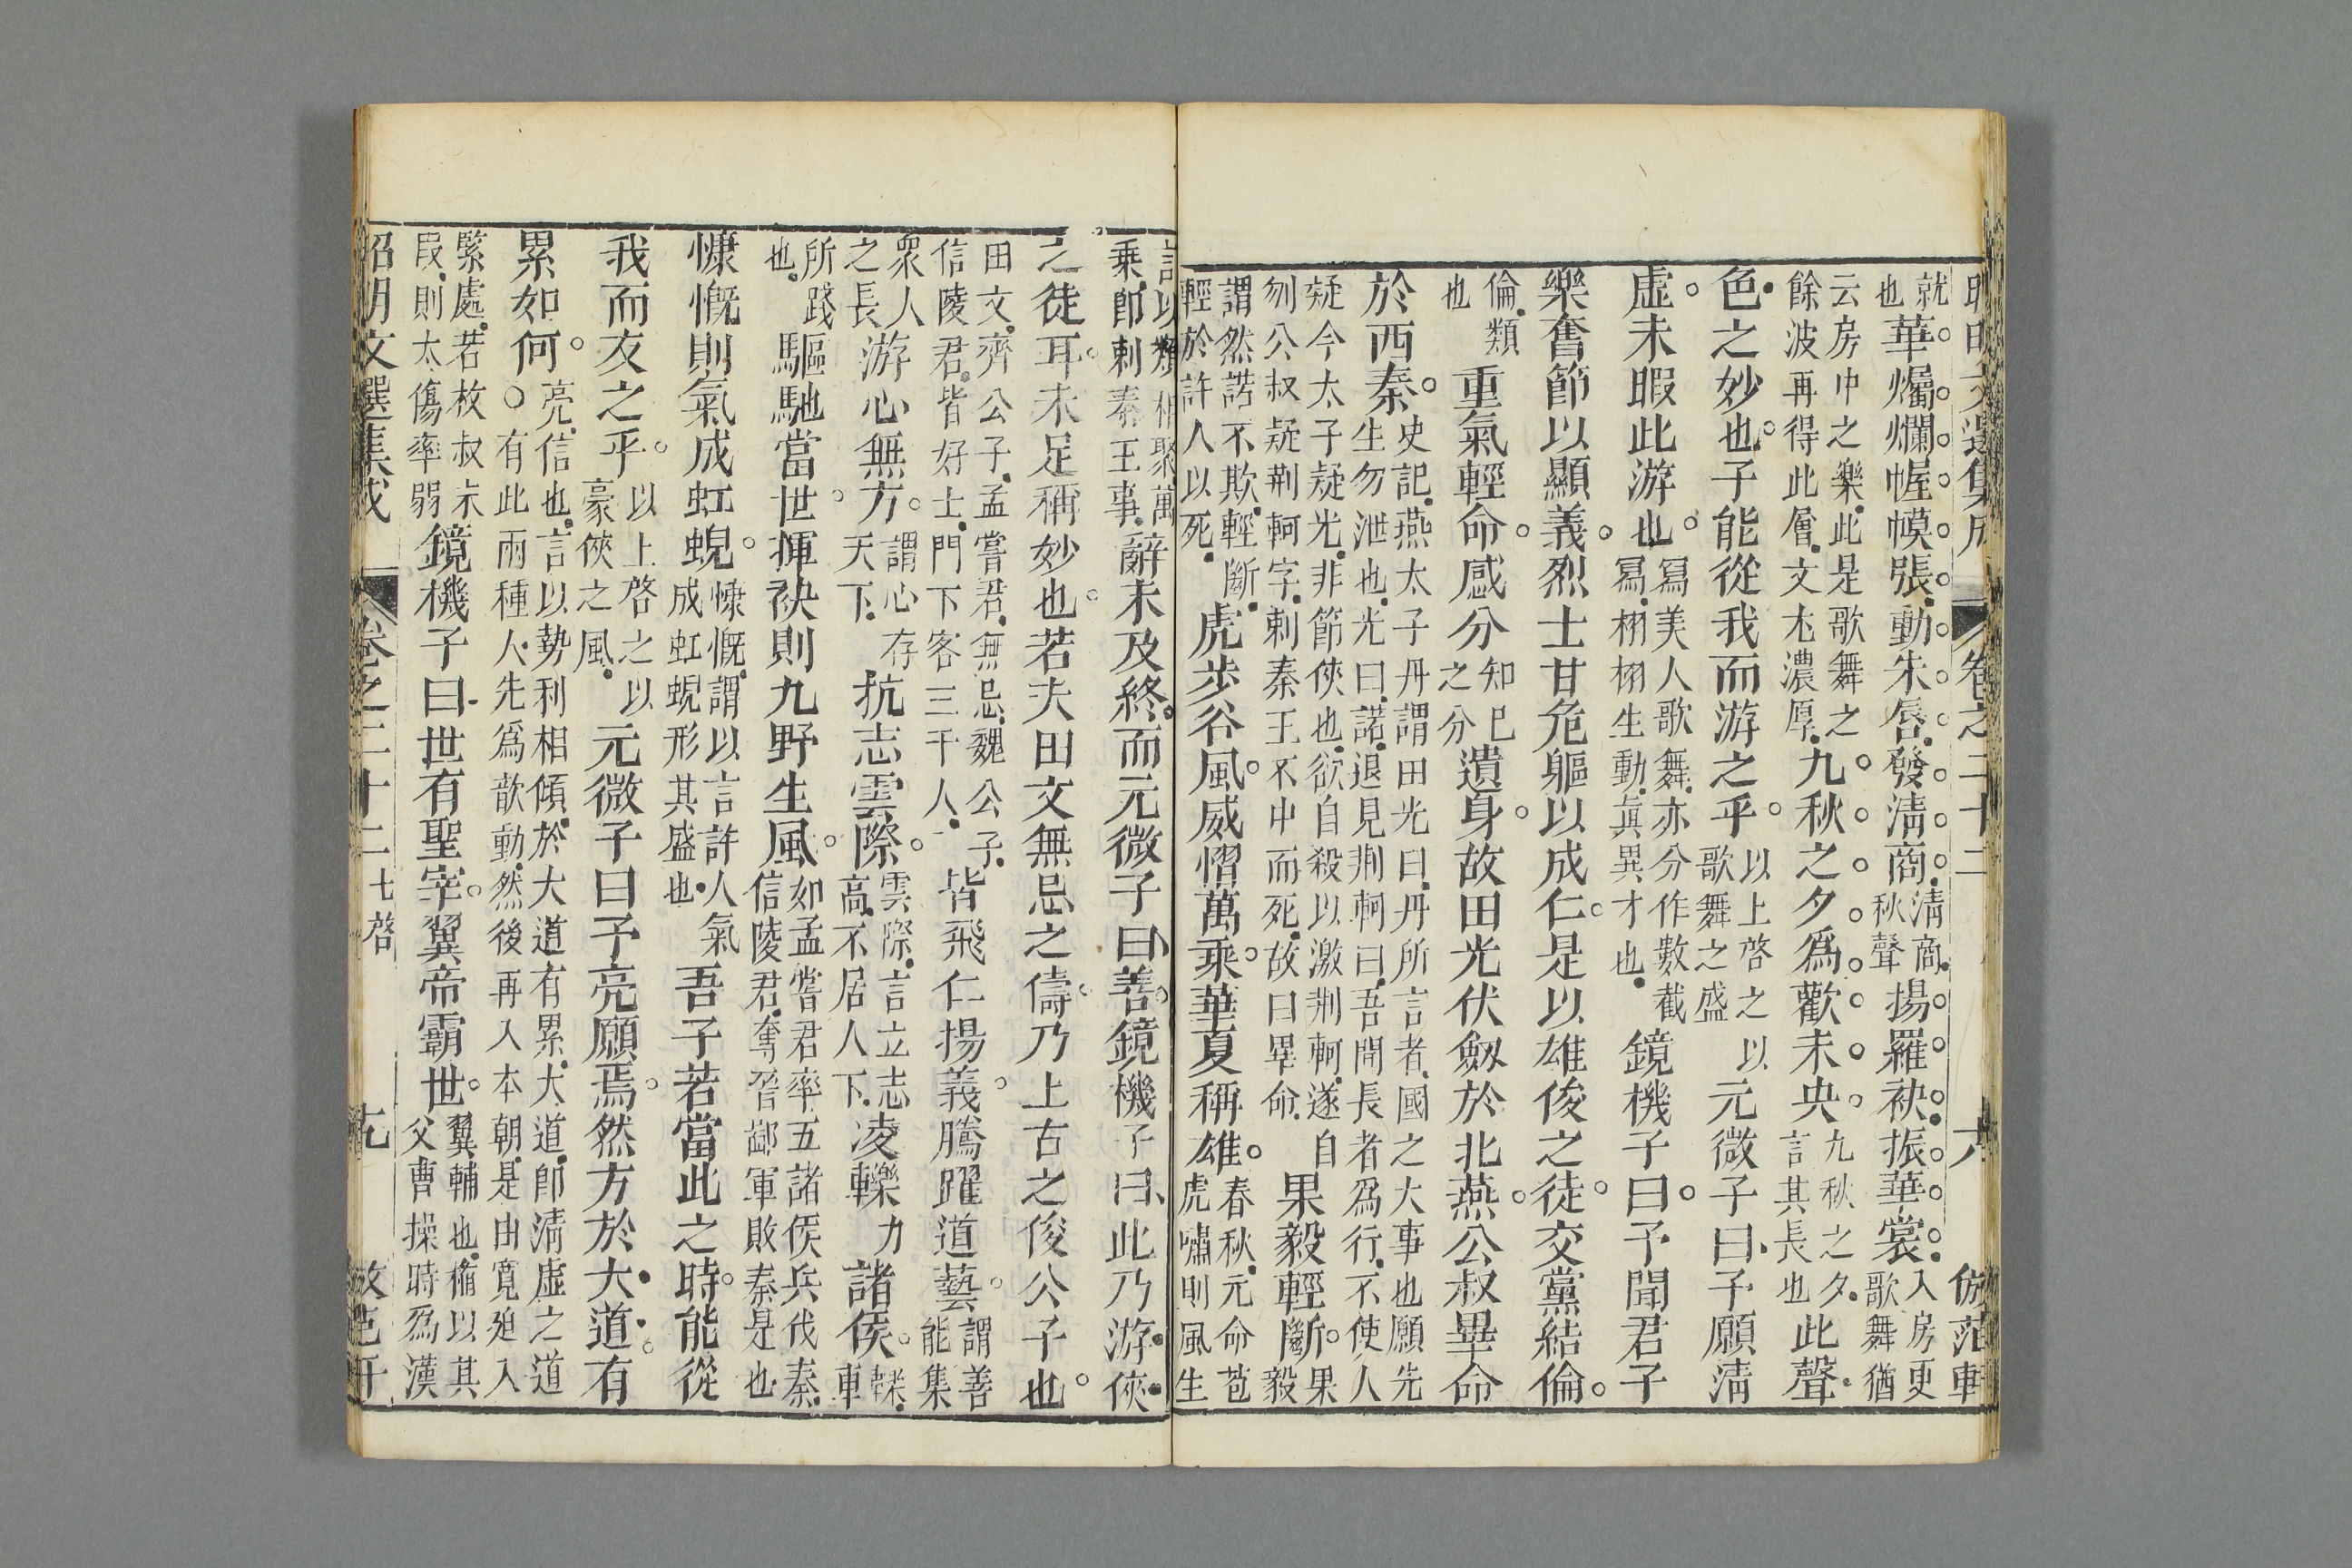 昭明文選集成 卷之二十二 六 倣范軒
就也華爥爛幄幙張動朱唇發淸商淸商秋聲揚羅袂振華裳入房更歌舞猶
云房中之樂此是歌舞之餘波再得此層文尤濃厚九秋之夕爲歡未央九秋之夕言其長也此聲
色之妙也子能從我而游之乎以上啓之以歌舞之盛元微子曰予願淸
虛未暇此游也寫美人歌舞亦分作數截寫栩栩生動眞異才也鏡機子曰予聞君子
樂奮節以顯義烈士甘危軀以成仁是以雄俊之徒交黨結倫
倫類也重氣輕命感分知已之分遺身故田光伏劔於北燕公叔畢命
於西秦史記燕太子丹謂田光曰丹所言者國之大事也願先生勿泄也光曰諾退見荆軻曰吾聞長者爲行不使人
疑今太子疑光非節俠也欲自殺以激荆軻遂自刎公叔疑荆軻字刺秦王不中而死故曰畢命果毅輕斷果毅
謂然諾不欺輕斷輕於許人以死虎步谷風威慴萬乘華夏稱雄春秋元命苞虎嘯則風生
類相聚萬乘卽刺秦王事辭未及終而元微子曰善鏡機子曰此乃游俠
之徒耳未足稱妙也若夫田文無忌之儔乃上古之俊公子也
田文齊公子孟嘗君無忌魏公子信陵君皆好士門下客三千人皆飛仁揚義騰躍道藝謂善能集
衆人之長游心無方謂心存天下抗志雲際雲際言立志高不居人下凌轢力諸侯轢車
所踐也驅馳當世揮袂則九野生風如孟嘗君率五諸侯兵伐秦信陵君奪晉鄙軍敗秦是也
慷慨則氣成虹蜺慷慨謂以言許人氣成虹蜺形其盛也吾子若當此之時能從
我而友之乎以上啓之以豪俠之風元微子曰予亮願焉然方於大道有
累如何亮信也言以勢利相傾於大道有累大道卽淸虛之道○有此兩種人先爲歆動然後再入本朝是由寬廹入
緊處若枚叔末段則太傷率弱鏡機子曰世有聖宰翼帝霸世翼輔也脩以其父曹操時爲漢
昭明文選集成 卷之二十二 七啓